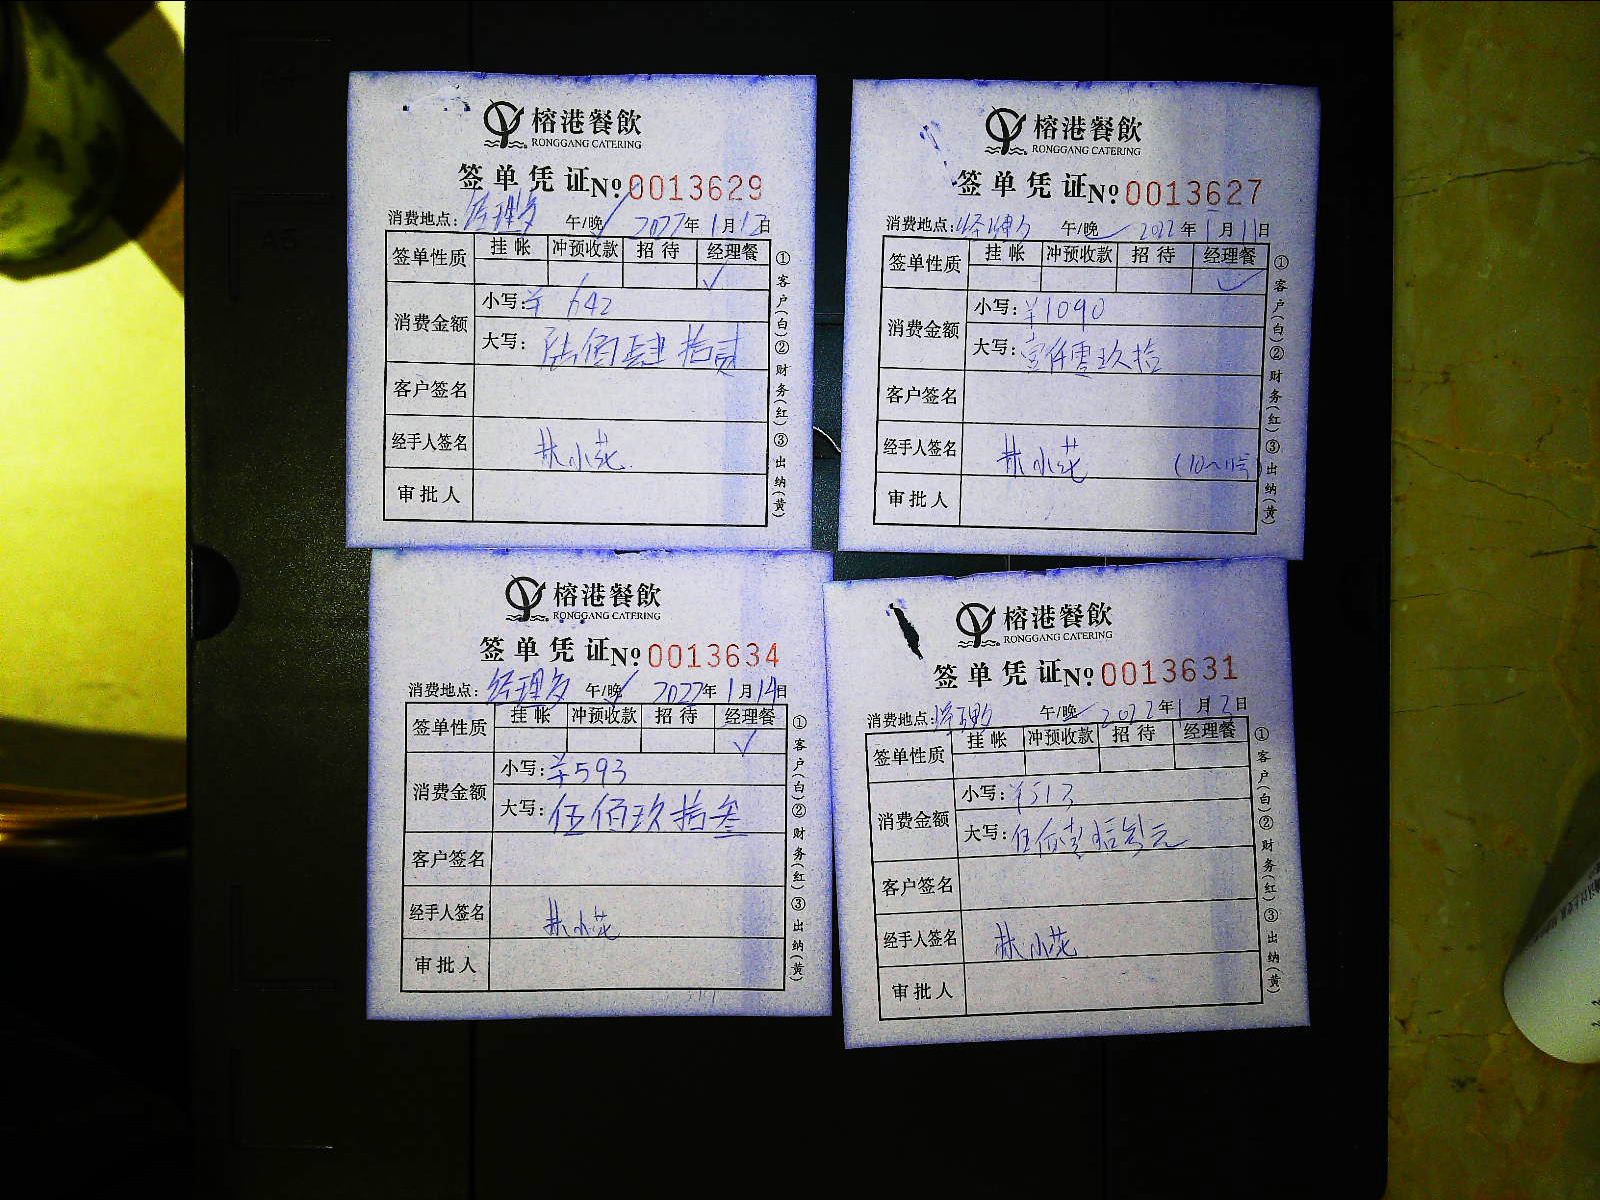 榕港餐飲
RONGGANG CATERING
签单凭证 № 0013629
消费地点: 经理 午/晚 2022年1月12日
签单性质 挂帐 冲预收款 招待 经理餐
✓
消费金额 小写: ¥ 642
大写: 陆佰肆拾贰
客户签名
经手人签名 林小花
审批人
①客户(白)②财务(红)③出纳(黄)
榕港餐飲
RONGGANG CATERING
签单凭证 № 0013627
消费地点: 午/晚 2022年1月11日
签单性质 挂帐 冲预收款 招待 经理餐
✓
消费金额 小写: ¥1090
大写: 壹仟零玖拾
客户签名
经手人签名 林小花 (10~11号)
审批人
①客户(白)②财务(红)③出纳(黄)
榕港餐飲
RONGGANG CATERING
签单凭证 № 0013634
消费地点: 经理 午/晚 2022年1月14日
签单性质 挂帐 冲预收款 招待 经理餐
✓
消费金额 小写: ¥593
大写: 伍佰玖拾叁
客户签名
经手人签名 林小花
审批人
①客户(白)②财务(红)③出纳(黄)
榕港餐飲
RONGGANG CATERING
签单凭证 № 0013631
消费地点: 午/晚 2022年1月 日
签单性质 挂帐 冲预收款 招待 经理餐
消费金额 小写: ¥513
大写: 伍佰壹拾叁元
客户签名
经手人签名 林小花
审批人
①客户(白)②财务(红)③出纳(黄)